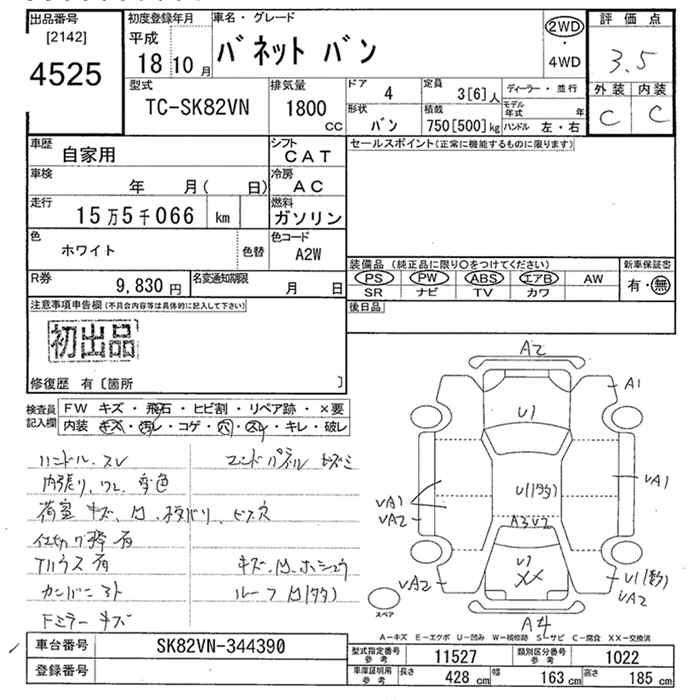 出品番号
[2142]
4525
初度登録年月
平成
18 10月
車名・グレード
バネット バン
2WD
4WD
評価点
3.5
外装 内装
C C
型式
TC-SK82VN
排気量
1800 CC
ドア 4
形状 バン
定員 3[6]人
積載 750[500]kg
ディーラー・並行
モデル年式 年
ハンドル 左・右
車歴 自家用
シフト CAT
セールスポイント(正常に機能するものに限ります)
車検 年 月( 日)
冷房 AC
走行 15万5千066 km
燃料 ガソリン
色 ホワイト 色替
色コード A2W
装備品 (純正品に限り○をつけてください)
新車保証書
PS PW ABS エアB AW
SR ナビ TV カワ
有・無
R券 9,830円
名変通知期限 月 日
後日品
注意事項申告欄(不具合内容等は具体的に記入して下さい)
初出品
修復歴 有〔箇所 〕
検査員記入欄
FW キズ・飛石・ヒビ割・リペア跡・×要
内装 キズ・汚レ・コゲ・穴・スレ・キレ・破レ
ハンドル、スレ
エンドパネル
内張り、ワレ、変色
荷室 キズ、凹、サビ、ビス穴
仕切り棒 有
キズ、凹、ホシュウ
ルーフ凹
Fミラーキズ
A2
A1
U1
UA1
UA1
UA2
A3U2
U1
XX
UA2
UA2
A4
スペア
A-キズ E-エクボ U-凹み W-補修跡 S-サビ C-腐食 XX-交換済
車台番号 SK82VN-344390
登録番号
型式指定番号 参考 11527
類別区分番号 参考 1022
車庫証明用 参考 長さ 428 cm 幅 163 cm 高さ 185 cm